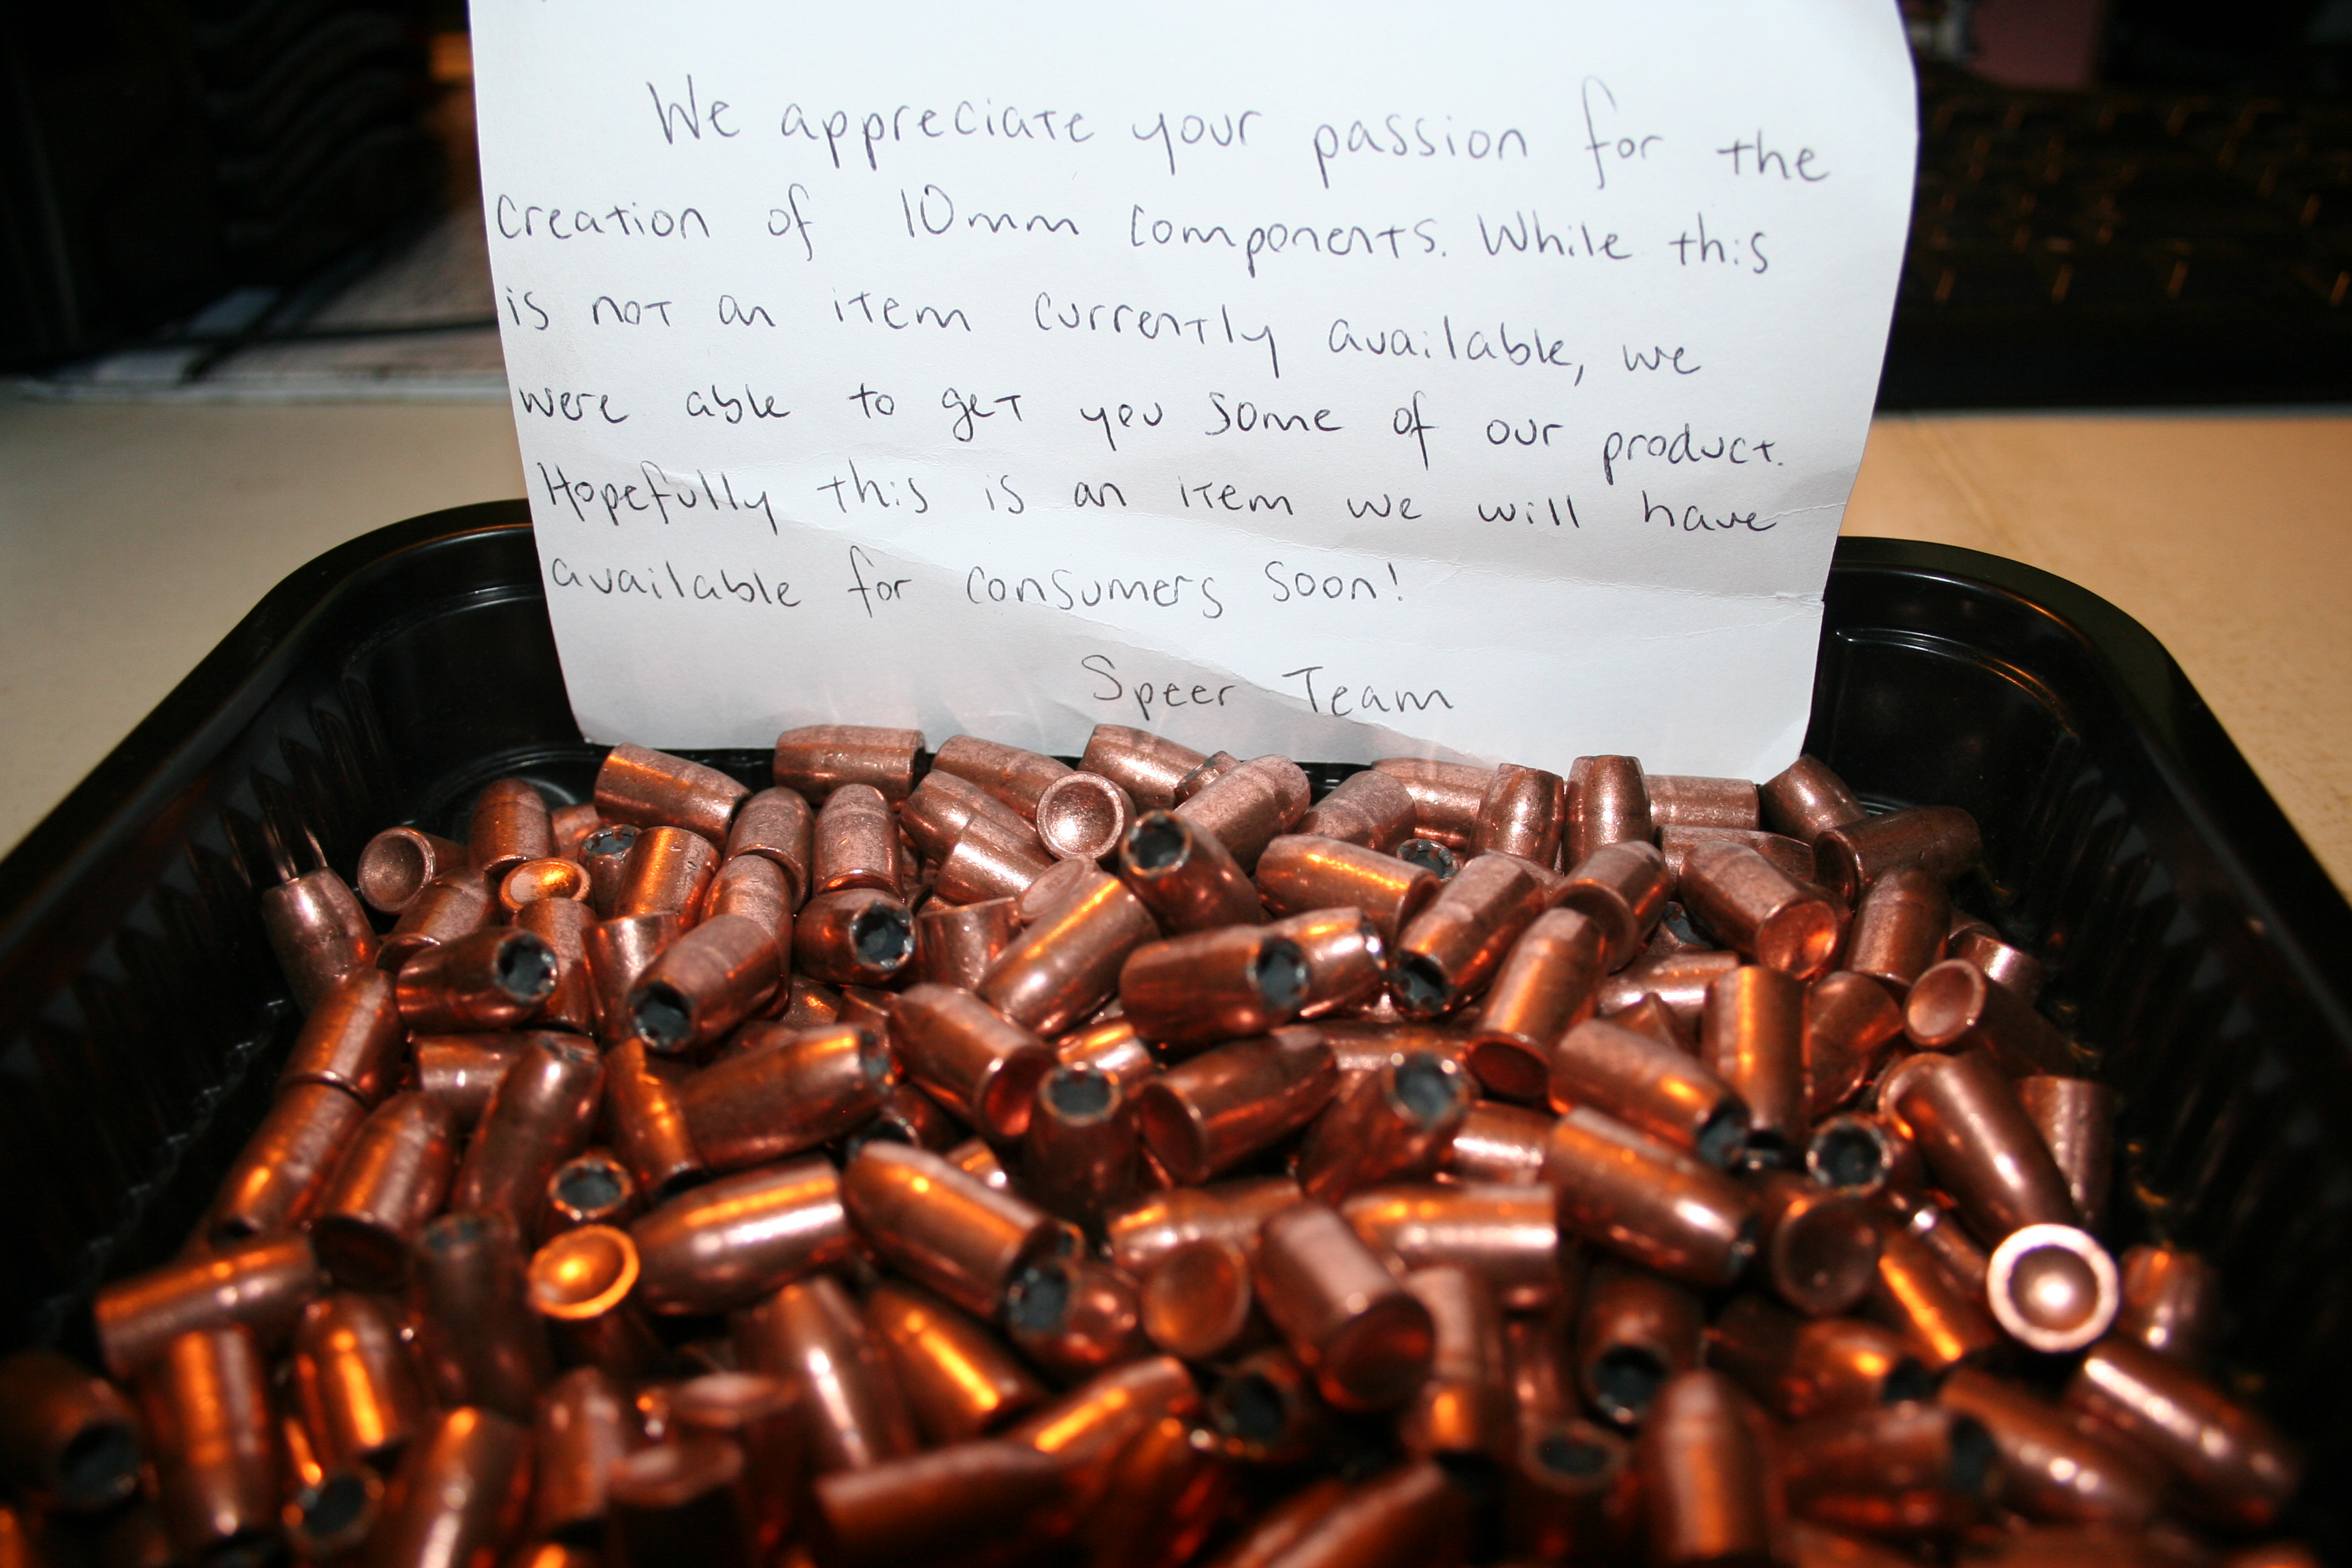 We appreciate your passion for the
creation of 10mm components. While this
is not an item currently available, we
were able to get you some of our product.
Hopefully this is an item we will have
available for consumers soon!
Speer Team